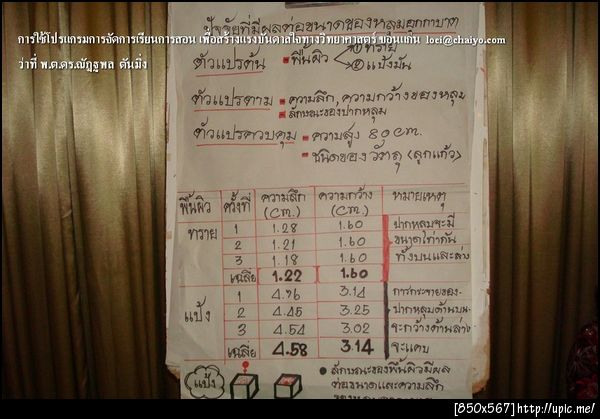 ปัจจัยที่มีผลต่อขนาดของหลุมอุกกาบาต
การใช้โปรแกรมการจัดการเรียนการสอน เพื่อสร้างแรงบันดาลใจทางวิทยาศาสตร์ ขอนแก่น loci@chaiyo.com
ว่าที่ พ.ต.ดร.ณัฏฐพล ตันมิ่ง
ตัวแปรต้น - พื้นผิว ① ทราย
② แป้งมัน
ตัวแปรตาม - ความลึก, ความกว้างของหลุม
- ลักษณะของปากหลุม
ตัวแปรควบคุม - ความสูง 80 cm.
- ชนิดของวัตถุ (ลูกแก้ว)
พื้นผิว ครั้งที่ ความลึก (cm.) ความกว้าง (cm.) หมายเหตุ
ทราย 1 1.28 1.60 ปากหลุมจะมี
2 1.21 1.60 ขนาดเท่ากัน
3 1.18 1.60 ทั้งบนและล่าง
เฉลี่ย 1.22 1.60
แป้ง 1 4.76 3.14 การกระจายของ
2 4.45 3.25 ปากหลุมด้านบน
3 4.54 3.02 จะกว้างด้านล่าง
เฉลี่ย 4.58 3.14 จะแคบ
แป้ง
• ลักษณะของพื้นผิวมีผล
ต่อขนาดและความลึก
[850x567] http://upic.me/